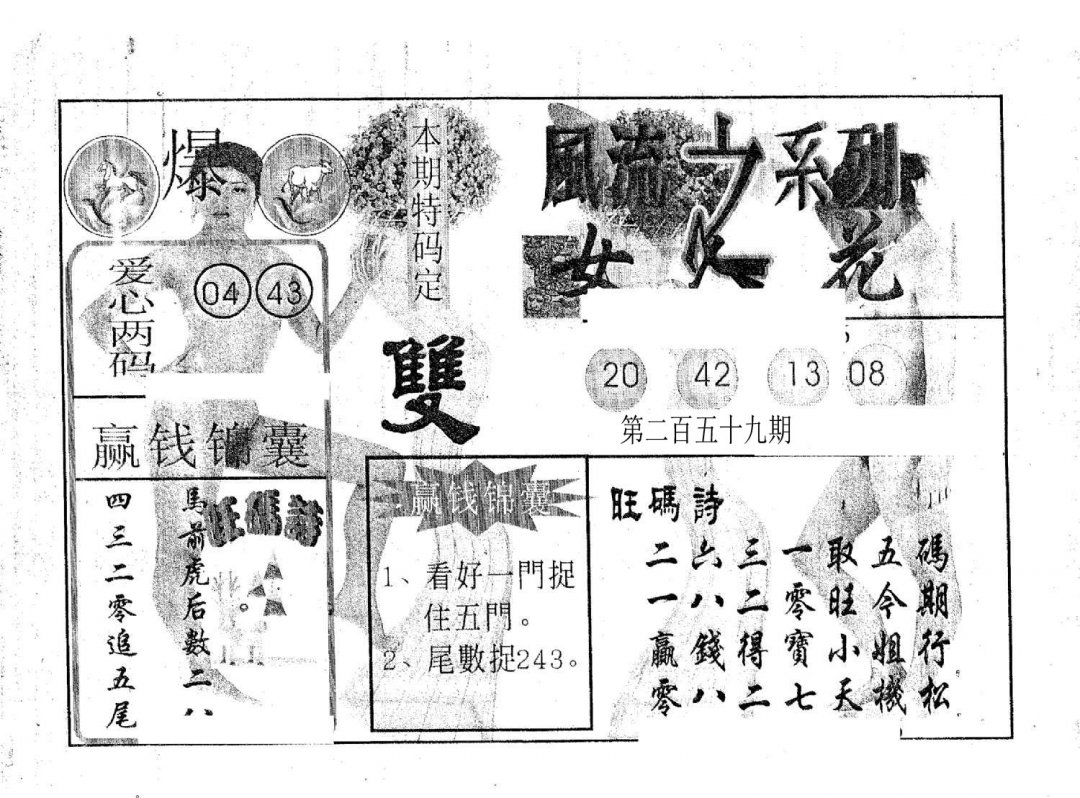 爆
本期特码定
雙
爱心两码
04 43
赢钱锦囊
馬前虎后数二八
四三二零追五尾
旺碼詩
風流之系列
女人花
20 42 13 08
第二百五十九期
赢钱锦囊
1、看好一門捉
住五門。
2、尾數捉243。
旺碼詩
二六三一取五碼
一八二零旺今期
赢錢得寶小姐行
零八二七天機松